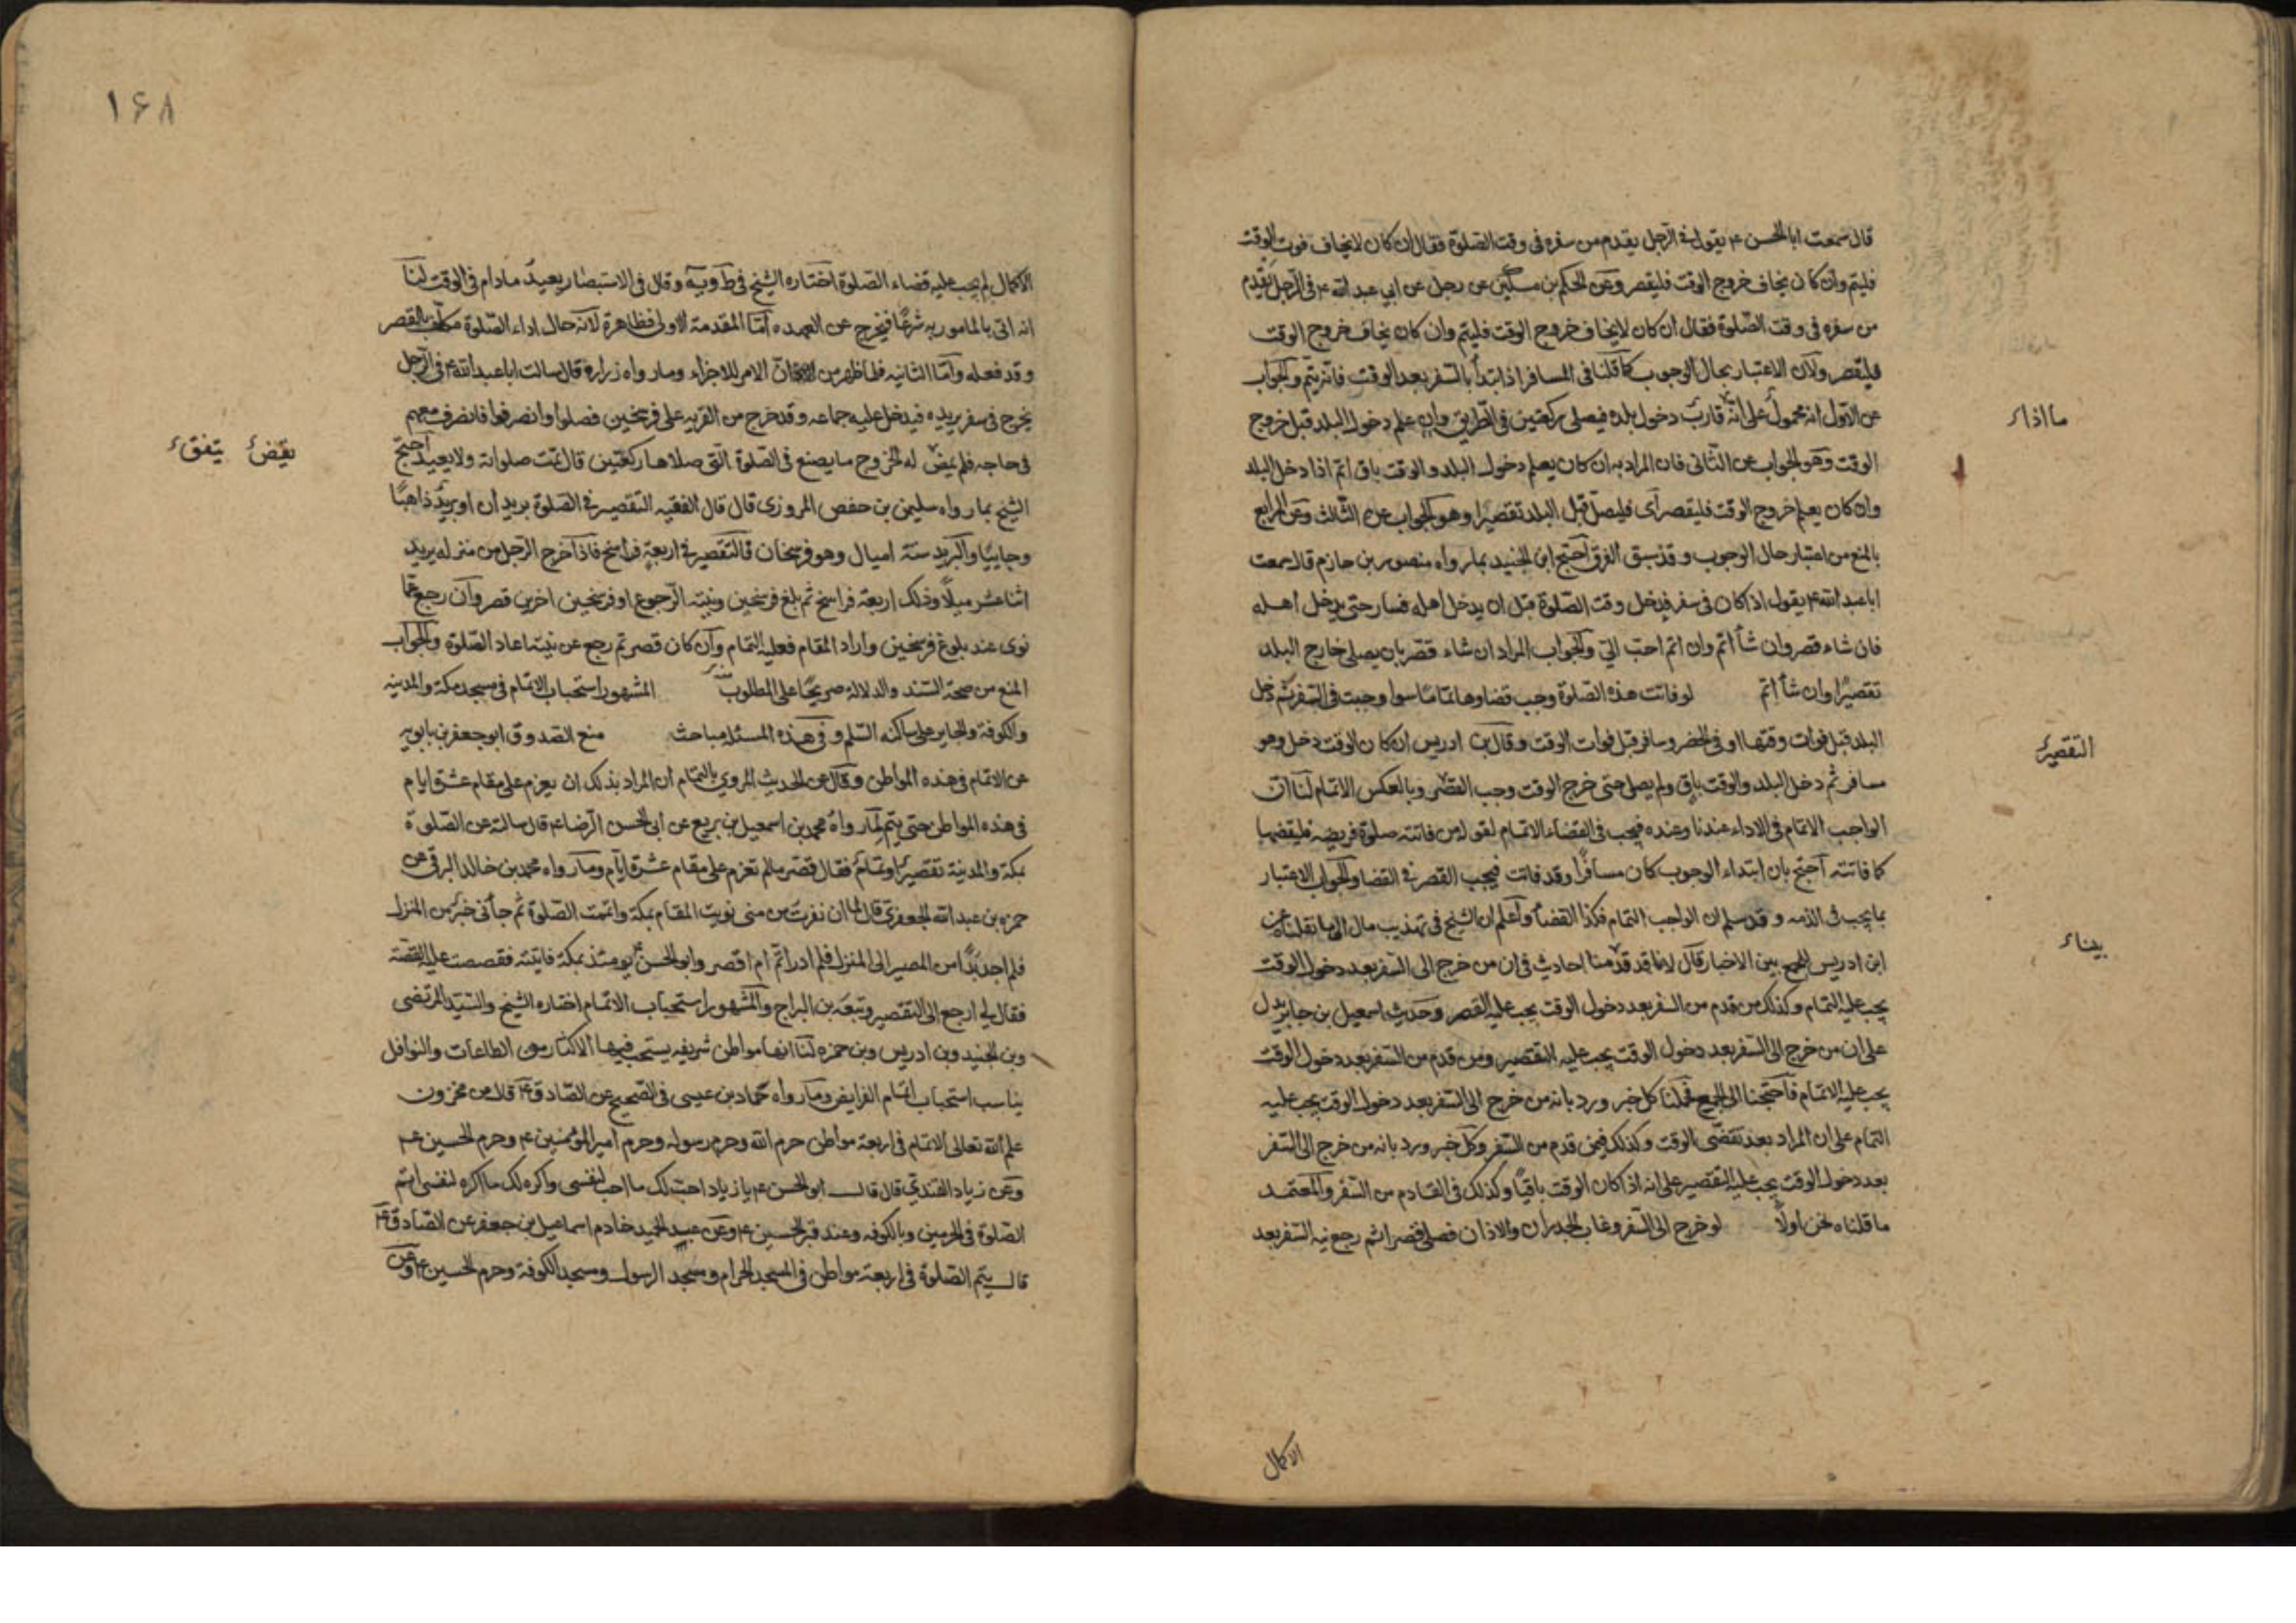 قال سمعت ابا الحسن ع يقول في الرجل يقدم من سفره فى وقت الصلوة فقال ان كان لا يخاف فوت الوقت
فليتم وان كان يخاف خروج الوقت فليقصر وعن الحكم بن مسكين عن رجل عن ابى عبد الله ع فى الرجل يقدم
من سفره فى وقت الصلوة فقال ان كان لا يخاف خروج الوقت فليتم وان كان يخاف خروج الوقت
فليقصر ولان الاعتبار بحال الوجوب كما قلنا فى المسافر اذا ابتدأ بالسفر بعد الوقت فانه يتم والجواب
عن الاول انه محمول على انه قارب دخول بلده فيصلى ركعتين فى الطريق وان علم دخول البلد قبل خروج
الوقت وهو الجواب عن الثانى فان المراد به ان كان يعلم دخول البلد والوقت باق اتم اذا دخل البلد
وان كان يعلم خروج الوقت فليقصر اى فليصل قبل البلد تقصيرا وهو الجواب عن الثالث وعن الرابع
بالمنع من اعتبار حال الوجوب وقد سبق الفرق احتج ابن الجنيد بما رواه منصور بن حازم قال سمعت
ابا عبد الله ع يقول اذا كان فى سفر فدخل وقت الصلوة قبل ان يدخل اهله فسار حتى يدخل اهله
فان شاء قصر وان شأ اتم وان اتم احب الىّ والجواب المراد ان شاء قصر بان يصلى خارج البلد
تقصيرا وان شأ اتم لو فاتت هذه الصلوة وجب قضاوها تماما سوا وجبت فى السفر ثم دخل
البلد قبل فوات وقتها او فى الحضر وسافر قبل فوات الوقت وقال بن ادريس ان كان الوقت دخل وهو
مسافر ثم دخل البلد والوقت باق ولم يصل حتى خرج الوقت وجب القصر وبالعكس الاتمام لنا ان
الواجب الاتمام فى الاداء عندنا وعنده فيجب فى القضاء الاتمام لقوله من فاتته صلوة فريضة فليقضها
كما فاتته احتج بان ابتداء الوجوب كان مسافرا وقد فاتت فيجب القصر فى القضا والجواب الاعتبار
بما يجب فى الذمه وقد سلم ان الواجب التمام فكذا القضأ واعلم ان الشيخ فى تهذيب مال الى ما نقلناه عن
ابن ادريس للجمع بين الاخبار قال لانا قد قدمنا احاديث فى ان من خرج الى السفر بعد دخول الوقت
يجب عليه التمام وكذلك من قدم من السفر بعد دخول الوقت يجب عليه القصر وحديث اسمعيل بن جابر يدل
على ان من خرج الى السفر بعد دخول الوقت يجب عليه التقصير ومن قدم من السفر بعد دخول الوقت
يجب عليه الاتمام فاحتجنا الى الجمع فحملنا كل خبر ورد بانه من خرج الى السفر بعد دخول الوقت يجب عليه
التمام على ان المراد بعد تقضى الوقت وكذلك فيمن قدم من السفر وكل خبر ورد بانه من خرج الى السفر
بعد دخول الوقت يجب عليه التقصير على انه اذا كان الوقت باقيا وكذلك فى القادم من السفر والمعتمد
ما قلناه نحن اولا لو خرج الى السفر وغاب الجدران والاذان فصلى قصرا ثم رجع نيه السفر بعد
ما اذا
التقصير
بيناء
الاكمال
١٦٨
الاكمال لم يجب عليه قضاء الصلوة اختاره الشيخ فى ط وية وقال فى الاستبصار يعيد مادام فى الوقت لنا
انه اتى بالمامور به شرعا فيخرج عن العهده اما المقدمة الاولى فظاهرة لانه حال اداء الصلوة مكلف بالقصر
وقد فعله واما الثانيه فلما ظهر من ان الامر للاجزاء وما رواه زرارة قال سالت ابا عبد الله ع فى الرجل
يخرج فى سفر يريده فيدخل عليه جماعه وقد خرج من القريه على فرسخين فصلوا وانصرفوا فانصرف معهم
فى حاجه فلم يقض له الخروج ما يصنع فى الصلوة التى صلاها ركعتين قال تمت صلواته ولا يعيد احتج
الشيخ بما رواه سليمن بن حفص المروزى قال قال الفقيه التقصير فى الصلوة بريدان او بريد ذاهبا
وجاييا والبريد ستة اميال وهو فرسخان فالتقصير فى اربعة فراسخ فاذا خرج الرجل من منزله يريد
اثنا عشر ميلا وذلك اربعة فراسخ ثم بلغ فرسخين ونيته الرجوع او فرسخين اخرين قصر وان رجع عما
نوى عند بلوغ فرسخين واراد المقام فعليه التمام وان كان قصر ثم رجع عن نيته اعاد الصلوة والجواب
المنع من صحة السند والدلالة صريحا على المطلوب المشهور استحباب الاتمام فى مسجد مكة والمدينه
والكوفة والحاير على ساكنه السلم وفى هذه المسئله مباحث منع الصدوق ابو جعفر بن بابويه
عن الاتمام فى هذه المواطن وقال عن الحديث المروى بالتمام ان المراد بذلك ان يعزم على مقام عشرة ايام
فى هذه المواطن حتى يتم لما رواه محمد بن اسمعيل بن بزيع عن ابى الحسن الرضا ع قال سالته عن الصلوة
بمكة والمدينة تقصير او تمام فقال قصر ما لم تعزم على مقام عشرة ايام وما رواه محمد بن خالد البرقى عن
حمزه بن عبد الله الجعفرى قال لما ان نفرت من منى نويت المقام بمكة واتممت الصلوة ثم جأنى خبر من المنزل
فلم اجد بدا من المصير الى المنزل فلم ادر اتم ام اقصر وابو الحسن ع يومئذ بمكة فاتيته فقصصت عليه القصة
فقال لى ارجع الى التقصير وتبعه بن البراج والمشهور استحباب الاتمام اختاره الشيخ والسيد المرتضى
وبن الجنيد وبن ادريس وبن حمزه لنا انها مواطن شريفه يستحب فيها الاكثار من الطاعات والنوافل
يناسب استحباب اتمام الفرايض وما رواه حماد بن عيسى فى الصحيح عن الصادق ع قال من مخزون
علم الله تعالى الاتمام فى اربعة مواطن حرم الله وحرم رسوله وحرم امير المؤمنين ع وحرم الحسين ع
وعن زياد القندى قال قال ابو الحسن ع يا زياد احب لك ما احب لنفسى واكره لك ما اكره لنفسى اتم
الصلوة فى الحرمين وبالكوفه وعند قبر الحسين ع وعن عبد الحميد خادم اسماعيل بن جعفر عن الصادق ع
قال يتم الصلوة فى اربعة مواطن فى المسجد الحرام ومسجد الرسول ومسجد الكوفة وحرم الحسين ع وعن
يقض يتفق